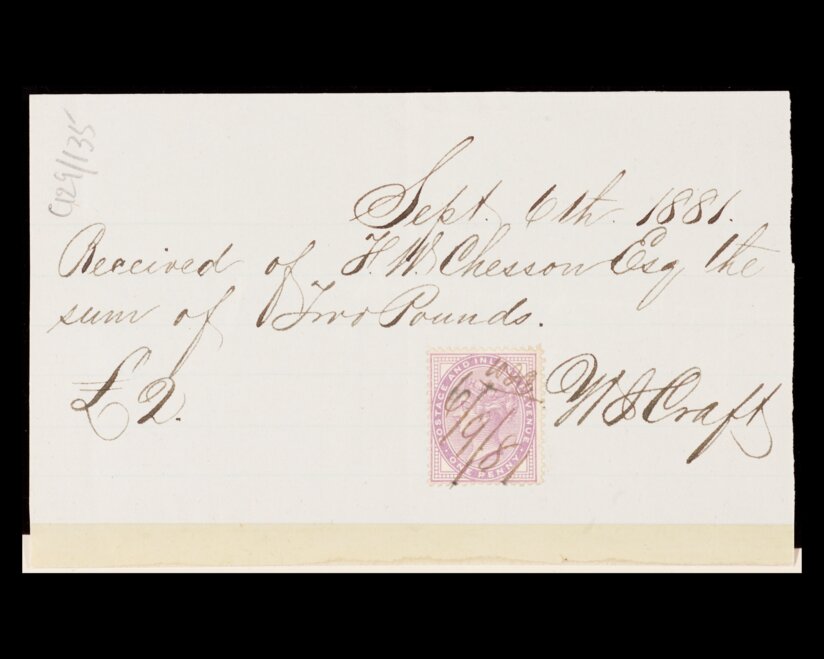 C129/135
Sept. 6th. 1881.
Received of F. W. Chesson Esq the
sum of Two Pounds.
£2.
W S Craft
POSTAGE AND INLAND REVENUE
6/9/81
ONE PENNY